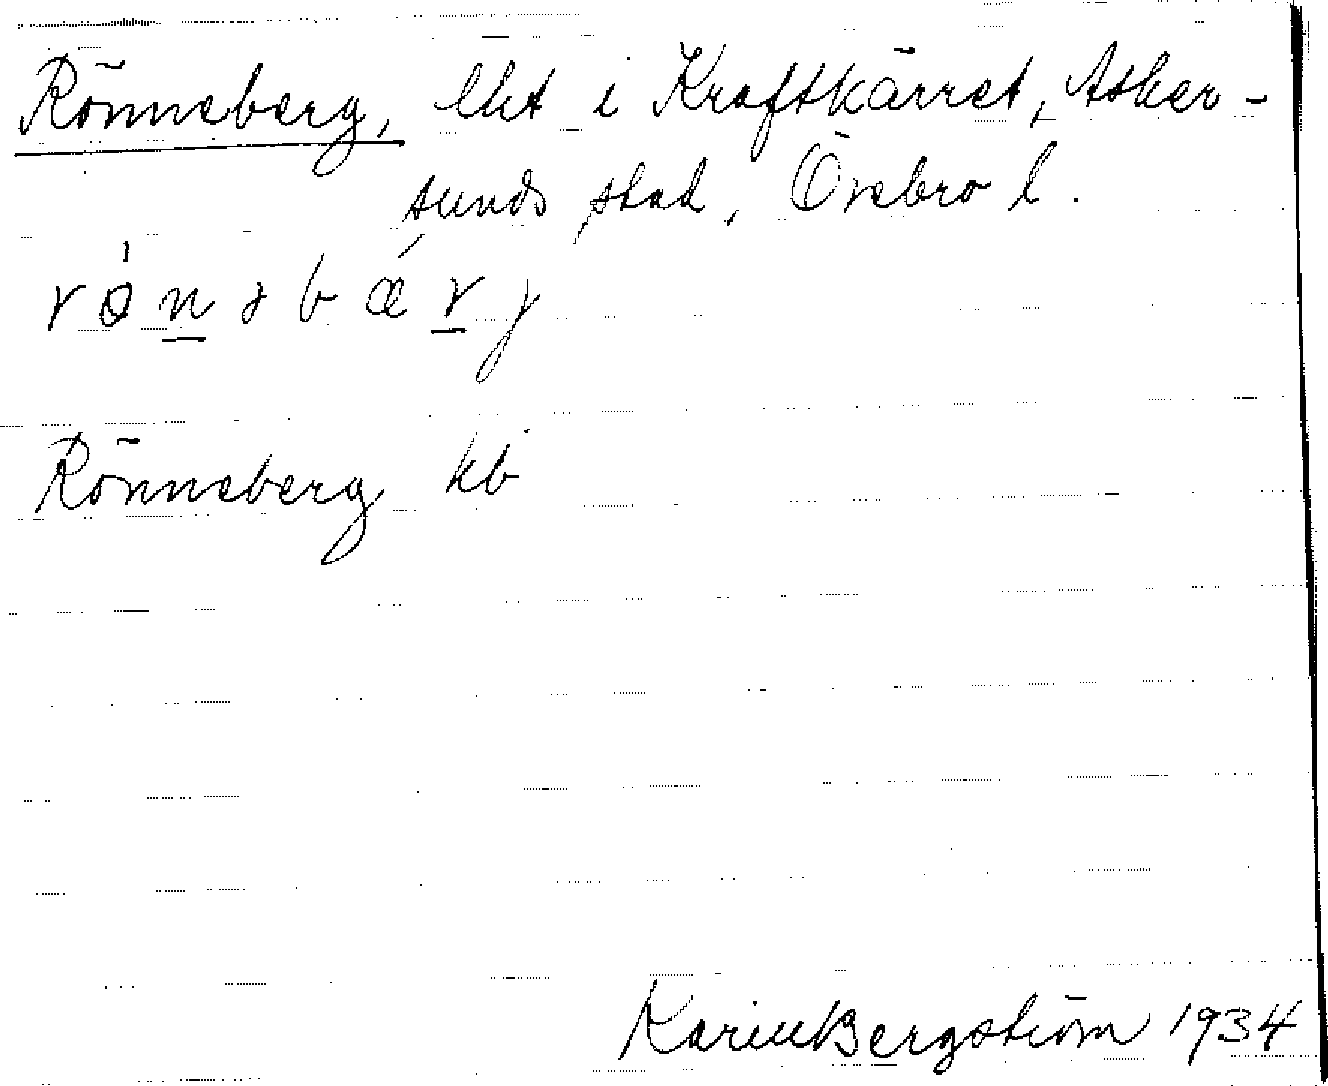 Rönneberg, lht i Kraftkärret, Asker-
sunds stad, Örebro l.
rǿnəbǽrj
Rönneberg kb
Karin Bergström 1934